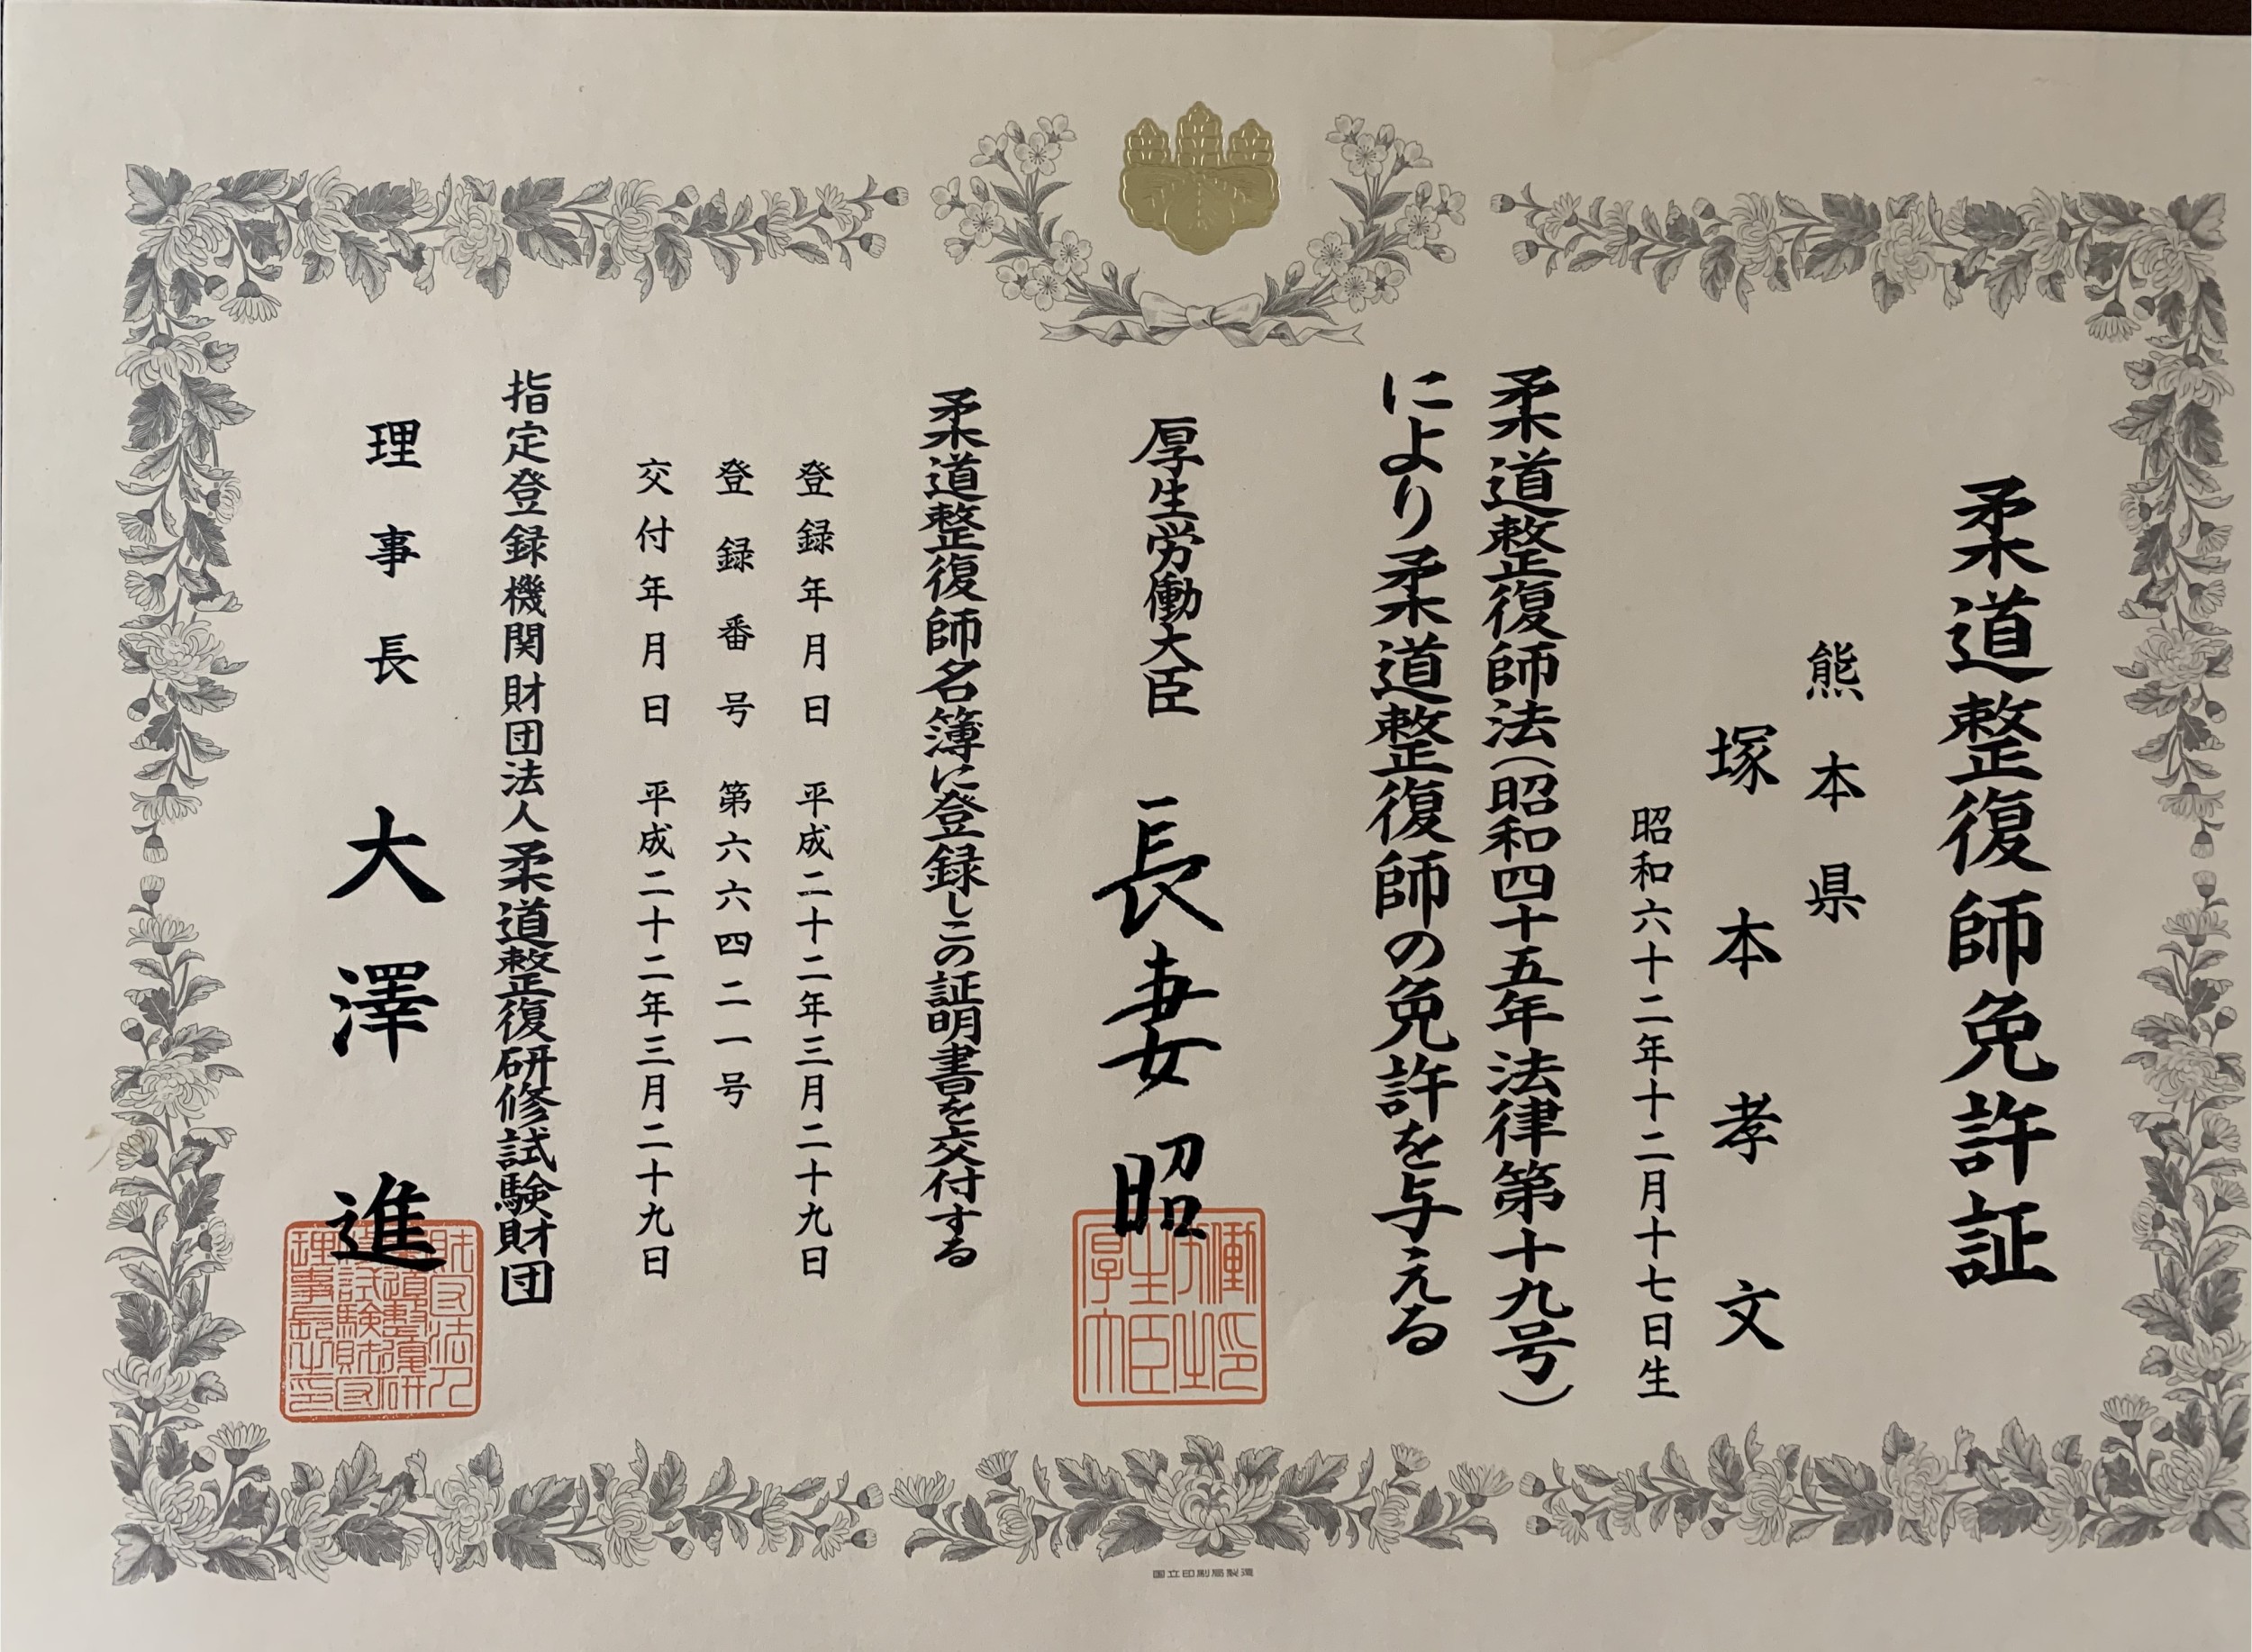 柔道整復師免許証
熊本県
塚本孝文
昭和六十二年十二月十七日生
柔道整復師法(昭和四十五年法律第十九号)
により柔道整復師の免許を与える
厚生労働大臣 長妻昭
柔道整復師名簿に登録しこの証明書を交付する
登録年月日 平成二十二年三月二十九日
登録番号 第六六四二一号
交付年月日 平成二十二年三月二十九日
指定登録機関財団法人柔道整復研修試験財団
理事長 大澤進
国立印刷局製造